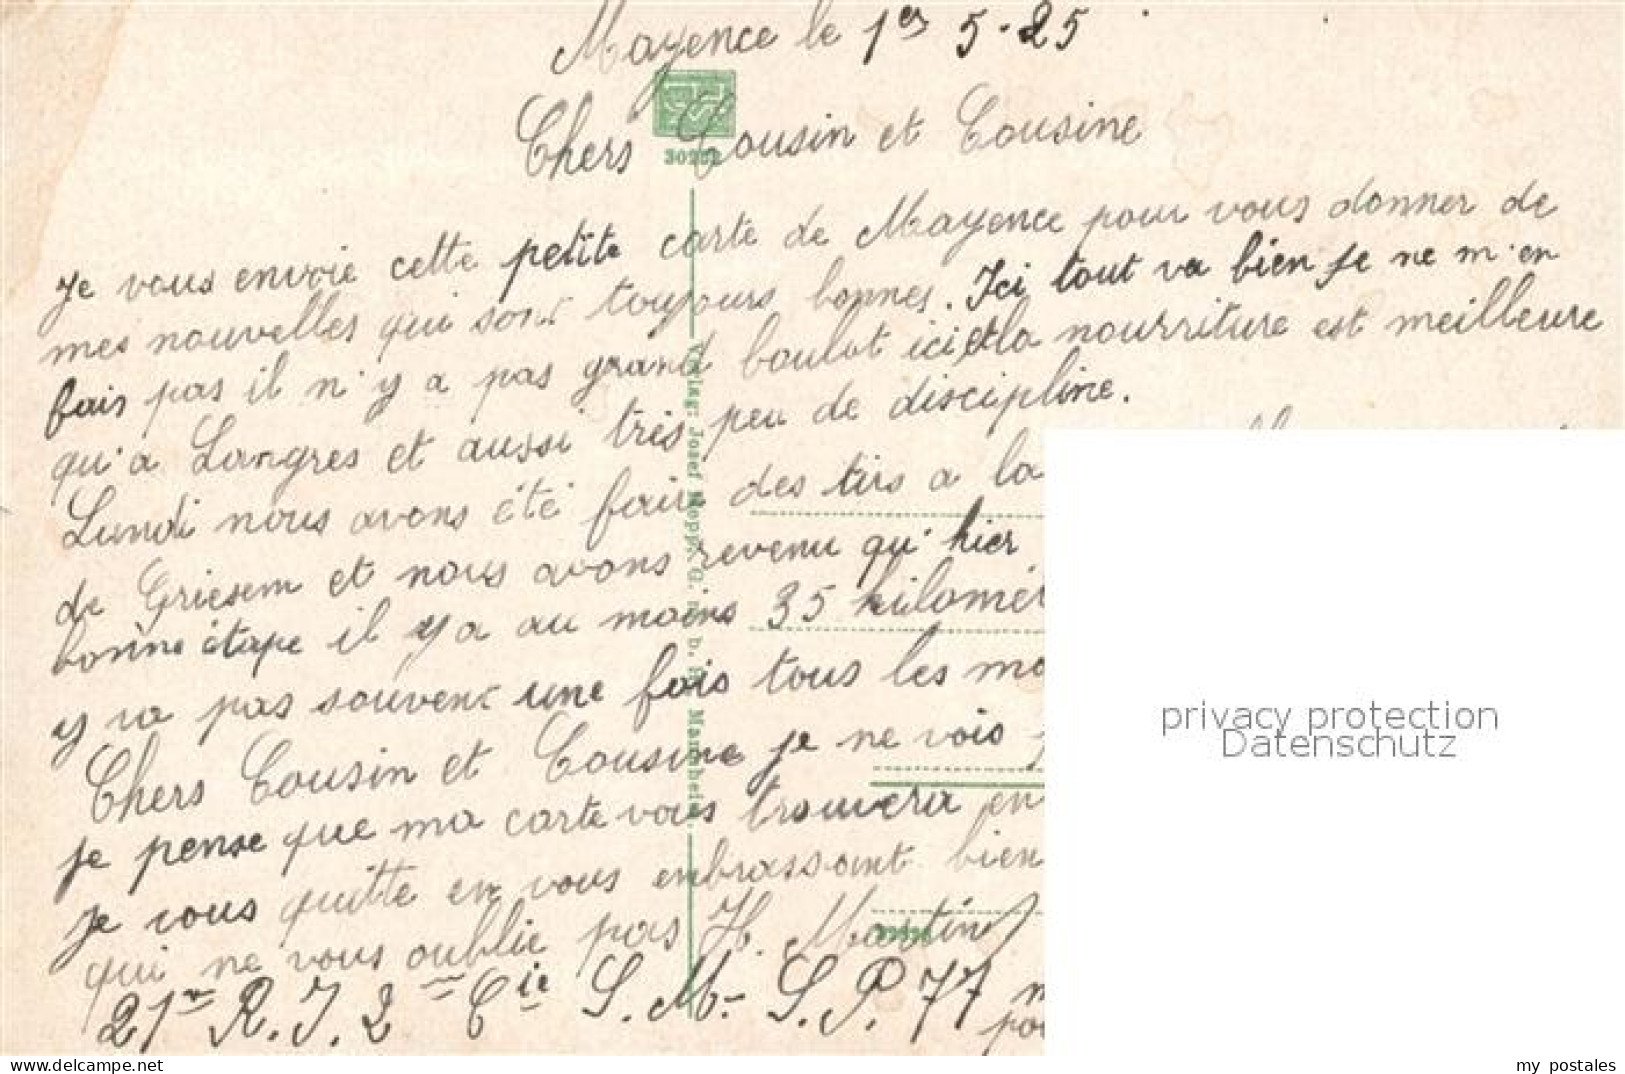 Mayence le 1er 5-25
Chers Cousin et Cousine
30252
je vous envoie cette petite carte de Mayence pour vous donner de
mes nouvelles qui sont toujours bonnes. Ici tout va bien je ne m'en
fais pas il n'y a pas grand boulot ici et la nourriture est meilleure
qu'a Langres et aussi très peu de discipline.
Lundi nous avons été faire des tirs a la
de Griesem et nous avons revenu qu'hier
bonne étape il y a au moins 35 kilomét
y va pas souvent une fois tous les mo
Chers Cousin et Cousine je ne vois
je pense que ma carte vous trouvera en
je vous quitte en vous enbrassant bien
qui ne vous oublie pas H. Martin
21me R.I. 2me Cie S.M. S.P. 77
Verlag: Josef Popp, G. m. b. H. Mannheim.
privacy protection
Datenschutz
delcampe.net
my_postales